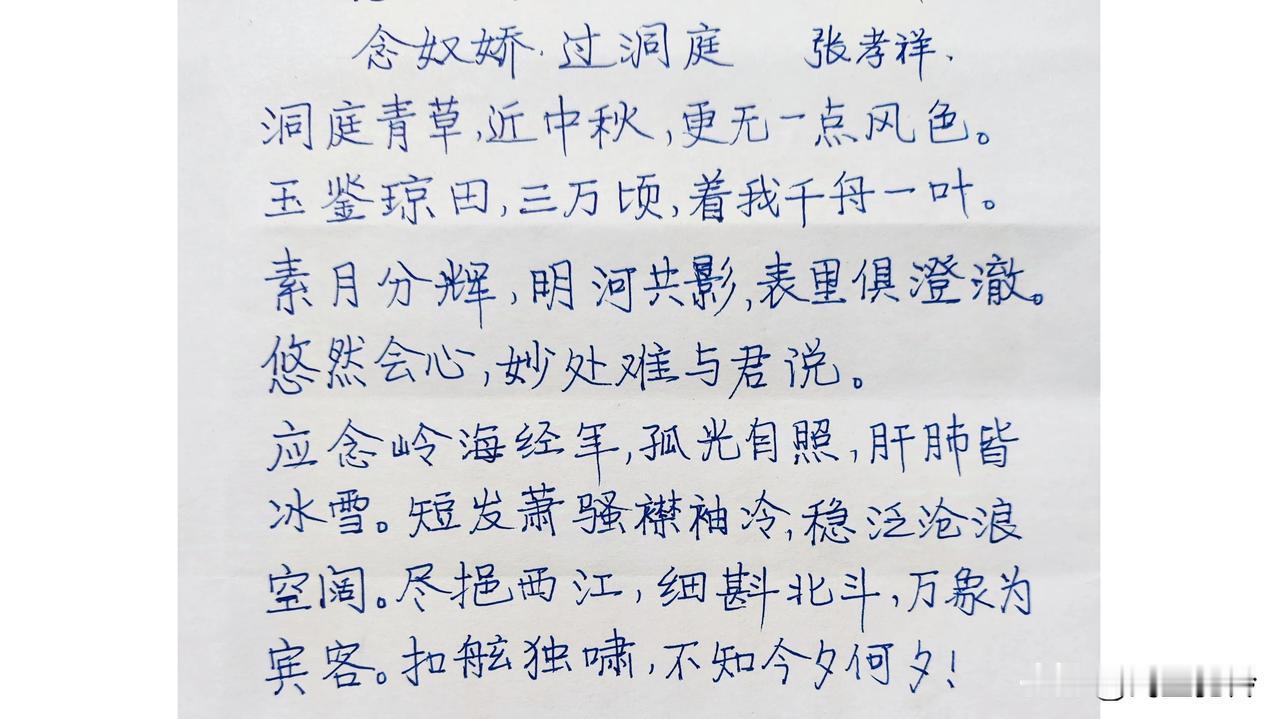 念奴娇·过洞庭 张孝祥.
洞庭青草,近中秋,更无一点风色。
玉鉴琼田,三万顷,着我千舟一叶。
素月分辉,明河共影,表里俱澄澈。
悠然会心,妙处难与君说。
应念岭海经年,孤光自照,肝肺皆
冰雪。短发萧骚襟袖冷,稳泛沧浪
空阔。尽挹西江,细斟北斗,万象为
宾客。扣舷独啸,不知今夕何夕!